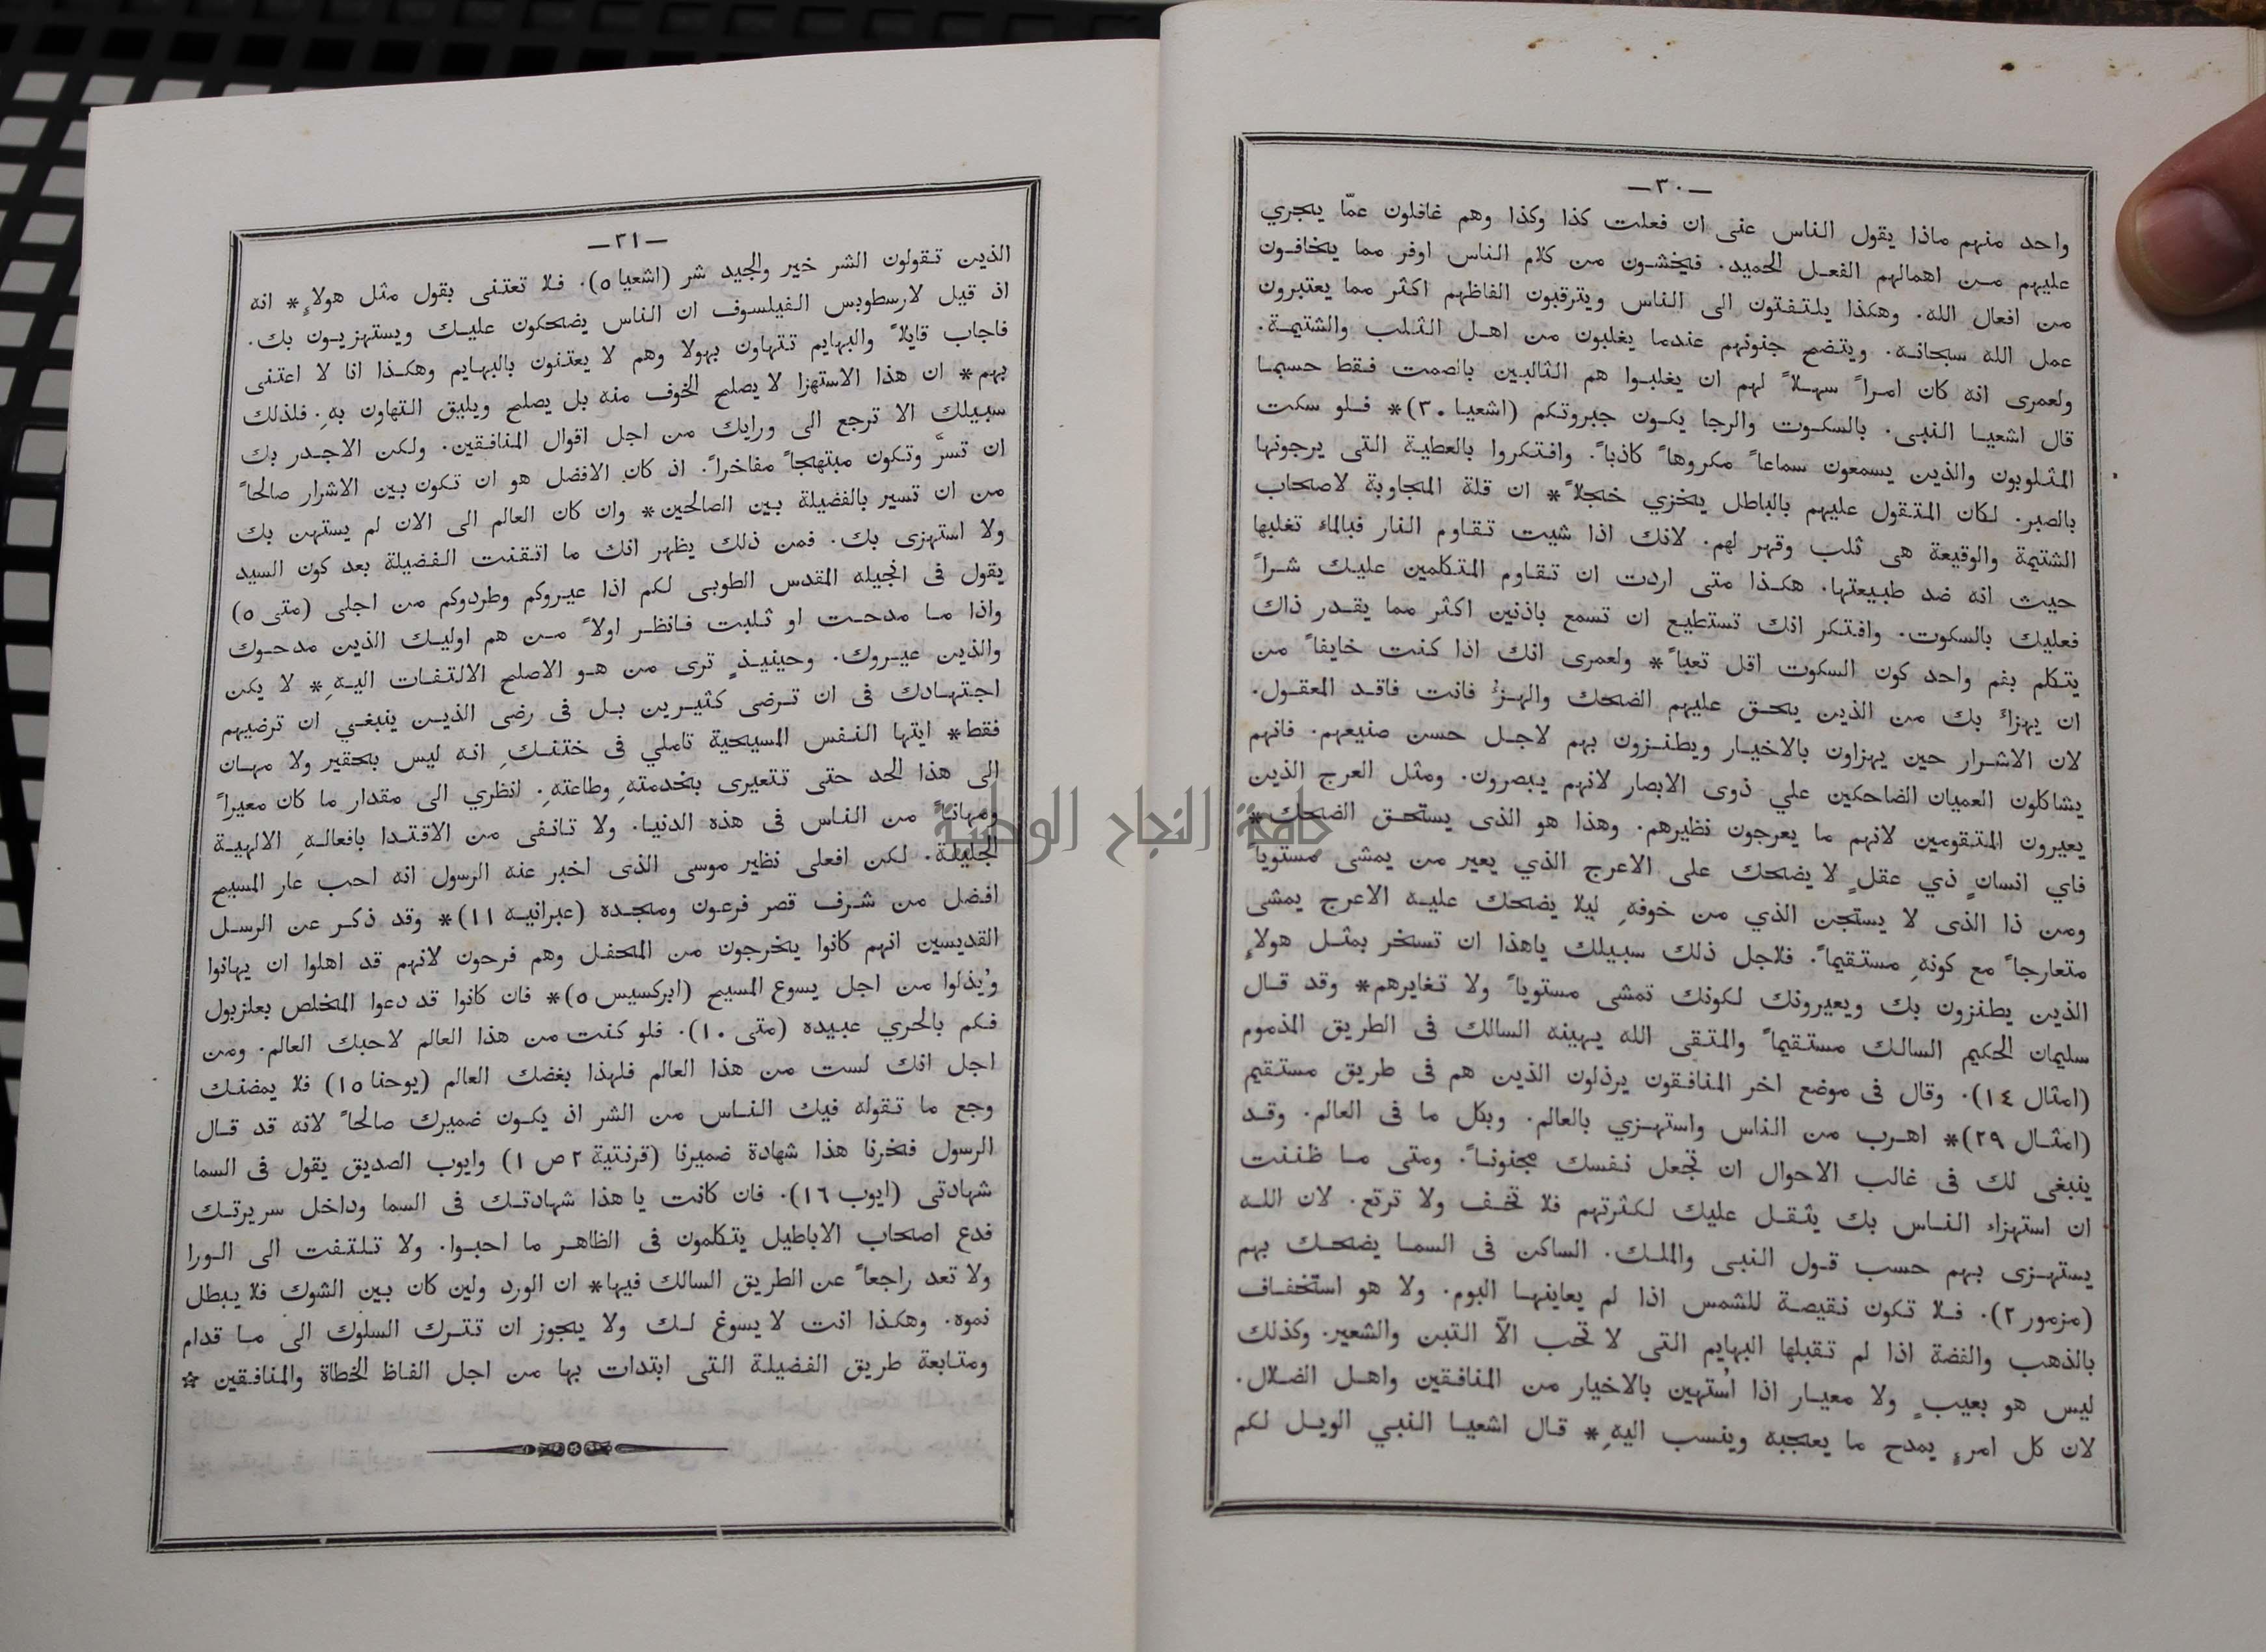 —٣٠—
واحد منهم ماذا يقول الناس عنى ان فعلت كذا وكذا وهم غافلون عمّا يجري
عليهم من اهمالهم الفعل الحميد. فيخشون من كلام الناس اوفر مما يخافون
من افعال الله. وهكذا يلتفتون الى الناس ويترقبون الفاظهم اكثر مما يعتبرون
عمل الله سبحانه. ويتضح جنونهم عندما يغلبون من اهل الثلب والشتيمة.
ولعمرى انه كان امراً سهلاً لهم ان يغلبوا هم الثالبين بالصمت فقط حسبما
قال اشعيا النبى. بالسكوت والرجا يكون جبروتكم (اشعيا ٣٠)* فلو سكت
المثلوبون والذين يسمعون سماعاً مكروهاً كاذباً. وافتكروا بالعطية التى يرجونها
بالصبر. لكان المتقول عليهم بالباطل يخزي خجلاً* ان قلة المجاوبة لاصحاب
الشتيمة والوقيعة هى ثلب وقهر لهم. لانك اذا شيت تقاوم النار فبالماء تغلبها
حيث انه ضد طبيعتها. هكذا متى اردت ان تقاوم المتكلمين عليك شراً
فعليك بالسكوت. وافتكر انك تستطيع ان تسمع باذنين اكثر مما يقدر ذاك
يتكلم بفم واحد كون السكوت اقل تعباً* ولعمرى انك اذا كنت خايفاً من
ان يهزاء بك من الذين يحق عليهم الضحك والهزؤ فانت فاقد المعقول.
لان الاشرار حين يهزاون بالاخيار ويطنزون بهم لاجل حسن صنيعهم. فانهم
يشاكلون العميان الضاحكين علي ذوى الابصار لانهم يبصرون. ومثل العرج الذين
يعيرون المتقومين لانهم ما يعرجون نظيرهم. وهذا هو الذى يستحق الضحك*
فاي انسانٍ ذي عقلٍ لا يضحك على الاعرج الذي يعير من يمشى مستوياً
ومن ذا الذى لا يستجن الذي من خوفهِ ليلا يضحك عليه الاعرج يمشى
متعارجاً مع كونهِ مستقيماً. فلاجل ذلك سبيلك ياهذا ان تسخر بمثل هولاءِ
الذين يطنزون بك ويعيرونك لكونك تمشى مستوياً ولا تغايرهم* وقد قال
سليمان الحكيم السالك مستقيماً والمتقى الله يهينه السالك فى الطريق المذموم
(امثال ١٤). وقال فى موضع اخر المنافقون يرذلون الذين هم فى طريق مستقيم
(امثال ٢٩)* اهرب من الناس واستهزي بالعالم. وبكل ما فى العالم. وقد
ينبغى لك فى غالب الاحوال ان تجعل نفسك مجنوناً. ومتى ما ظننت
ان استهزاء الناس بك يثقل عليك لكثرتهم فلا تخف ولا ترتع. لان الله
يستهزى بهم حسب قول النبى والملك. الساكن فى السما يضحك بهم
(مزمور ٢). فلا تكون نقيصة للشمس اذا لم يعاينها البوم. ولا هو استخفاف
بالذهب والفضة اذا لم تقبلها البهايم التى لا تحب الاّ التبن والشعير. وكذلك
ليس هو بعيبٍ ولا معيار اذا اُستهين بالاخيار من المنافقين واهل الضلال.
لان كل امرءٍ يمدح ما يعجبه وينسب اليهِ* قال اشعيا النبي الويل لكم
—٣١—
الذين تقولون الشر خير والجيد شر (اشعيا ٥). فلا تعتنى بقول مثل هولاءِ* انه
اذ قيل لارسطوبس الفيلسوف ان الناس يضحكون عليك ويستهزيون بك.
فاجاب قايلاً والبهايم تتهاون بهولا وهم لا يعتنون بالبهايم وهكذا انا لا اعتنى
بهم* ان هذا الاستهزا لا يصلح الخوف منه بل يصلح ويليق التهاون بهِ. فلذلك
سبيلك الا ترجع الى ورايك من اجل اقوال المنافقين. ولكن الاجدر بك
ان تسرَّ وتكون مبتهجاً مفاخراً. اذ كان الافضل هو ان تكون بين الاشرار صالحاً
من ان تسير بالفضيلة بين الصالحين* وان كان العالم الى الان لم يستهن بك
ولا استهزى بك. فمن ذلك يظهر انك ما اتقنت الفضيلة بعد كون السيد
يقول فى انجيله المقدس الطوبى لكم اذا عيروكم وطردوكم من اجلى (متى ٥)
واذا ما مدحت او ثلبت فانظر اولاً من هم اوليك الذين مدحوك
والذين عيروك. وحينيذٍ ترى من هو الاصلح الالتفات اليهِ* لا يكن
اجتهادك فى ان ترضى كثيرين بل فى رضى الذين ينبغي ان ترضيهم
فقط* ايتها النفس المسيحية تاملي فى ختنكِ انه ليس بحقير ولا مهان
الى هذا الحد حتى تتعيرى بخدمتهِ وطاعتهِ. انظري الى مقدار ما كان معيراً
ومهاناً من الناس فى هذه الدنيا. ولا تانفى من الاقتدا بافعالهِ الالهية
الجليلة. لكن افعلى نظير موسى الذى اخبر عنه الرسول انه احب عار المسيح
افضل من شرف قصر فرعون ومجده (عبرانيه ١١)* وقد ذكر عن الرسل
القديسين انهم كانوا يخرجون من المحفل وهم فرحون لانهم قد اهلوا ان يهانوا
ويُذلوا من اجل يسوع المسيح (ابركسيس ٥)* فان كانوا قد دعوا المخلص بعلزبول
فكم بالحري عبيده (متى ١٠). فلو كنت من هذا العالم لاحبك العالم. ومن
اجل انك لست من هذا العالم فلهذا بغضك العالم (يوحنا ١٥) فلا يمضنك
وجع ما تقوله فيك الناس من الشر اذ يكون ضميرك صالحاً لانه قد قال
الرسول فخرنا هذا شهادة ضميرنا (قرنتية ٢ ص ١) وايوب الصديق يقول فى السما
شهادتى (ايوب ١٦). فان كانت يا هذا شهادتك فى السما وداخل سريرتك
فدع اصحاب الاباطيل يتكلمون فى الظاهر ما احبوا. ولا تلتفت الى الورا
ولا تعد راجعاً عن الطريق السالك فيها* ان الورد ولين كان بين الشوك فلا يبطل
نموه. وهكذا انت لا يسوغ لك ولا يجوز ان تترك السلوك الى ما قدام
ومتابعة طريق الفضيلة التى ابتدات بها من اجل الفاظ الخطاة والمنافقين ☆
جامعة النجاح الوطنية